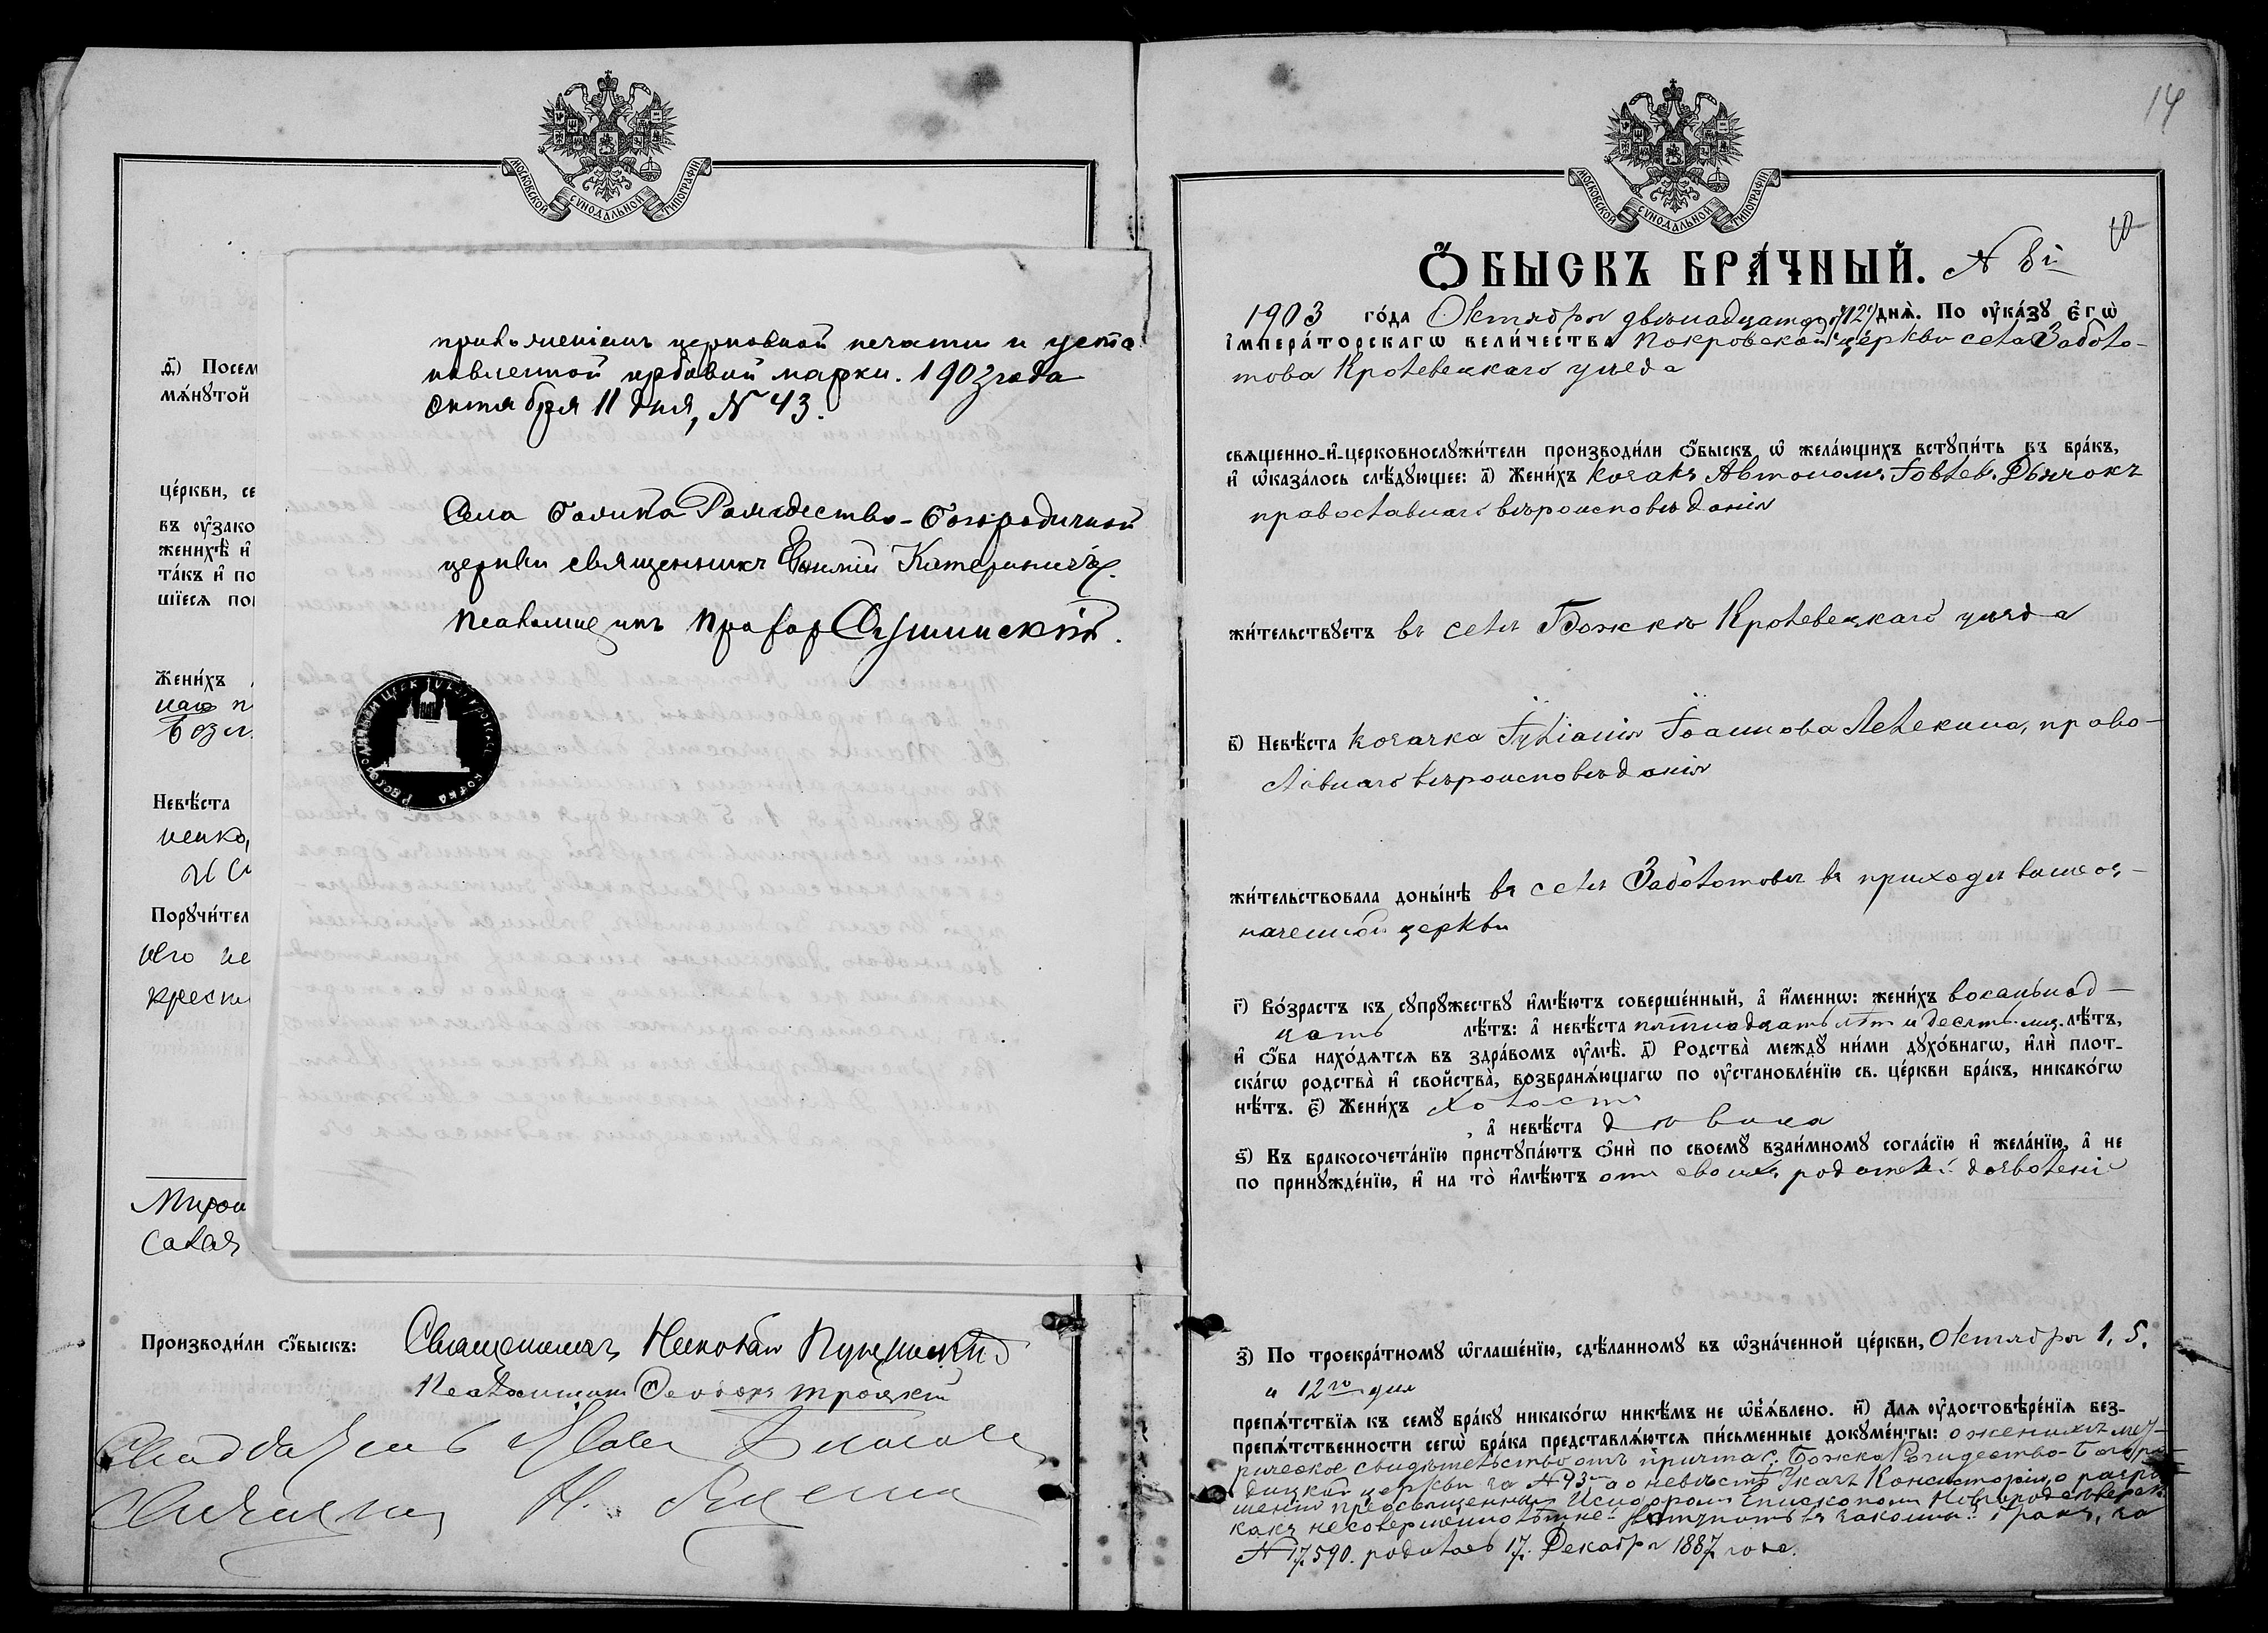 МОСКОВСКОЙ СѴНОДАЛЬНОЙ ТИПОГРАФІИ
а҃) Посем
мѧнꙋтой
це́ркви, се
въ оу҆зако
женихѣ̀ и҆
та́къ и҆ по
шїесѧ по
Жени́хъ
наго п
Невѣ́ста
Порꙋчи́тел
него не
Мирон
приложеніемъ церковной печати и уста
новленной гербовой марки. 1903 года
октября 11 дня, № 43.
Села Божка Рождество-Богородичной
церкви священникъ Евѳимій Катериничъ.
Псаломщикъ Прохор Сушинскій.
Произвѡди́ли ѻ҆́быскъ: Священникъ
Псаломщикъ Троицкій
МОСКОВСКОЙ СѴНОДАЛЬНОЙ ТИПОГРАФІИ
14
10
Ѻ҆́БЫСКЪ БРА́ЧНЫЙ. № 8й
1903 го́да Октября двѣнадцатаго "12" днѧ̀. По оу҆ка́зꙋ є҆гѡ̀
і҆мпера́торскагѡ вели́чества Покровской церкви села Заболо-
това Кролевецкаго уѣзда
свѧще́нно-и҆-церковнослꙋжи́тели производи́ли ѻ҆́быскъ ѡ҆ жела́ющихъ встꙋпи́ть въ бра́къ,
и҆ ѡ҆каза́лось слѣ́дꙋющее: а҃) Жени́хъ козакъ Автономъ Іовлев. Дьячокъ
православнаго вѣроисповѣданія
жи́тельствꙋетъ въ селѣ Божкѣ Кролевецкаго уѣзда
в҃) Невѣ́ста козачка Іуліанія Іоаннова Лелекина, право-
славнаго вѣроисповѣданія
жи́тельствовала доны́нѣ въ селѣ Заболотовѣ въ приходѣ вышеоз-
наченной церкви
г҃) Во́зрастъ къ сꙋпрꙋ́жествꙋ и҆мѣ́ютъ соверше́нный, а҆ и҆́меннѡ: жени́хъ восемьнад-
цать лѣ́тъ: а҆ невѣ́ста пятнадцать лѣт и десять мѣс. лѣ́тъ,
и҆ ѻ҆́ба нахо́дѧтсѧ въ здра́вомъ оу҆мѣ̀. д҃) Родства̀ междꙋ̀ ни́ми дꙋхо́внагѡ, и҆лѝ плот-
ска́гѡ родства̀ и҆ сво́йства, возбранѧ́ющагѡ по оу҆становле́нїю св. це́ркви бра́къ, никако́гѡ
нѣ́тъ. є҃) Жени́хъ холостъ
, а҆ невѣ́ста дѣвица
ѕ҃) Къ бракосочета́нїю пристꙋпа́ютъ ѻ҆нѝ по своемꙋ̀ взаи́мномꙋ согла́сїю и҆ жела́нїю, а҆ не
по принꙋжде́нїю, и҆ на то̀ и҆мѣ́ютъ отъ своихъ родителей дозволеніе
з҃) По троекра́тномꙋ ѡ҆глаше́нїю, сдѣ́ланномꙋ въ ѡ҆зна́ченной це́ркви, Октября 1, 5.
и 12го дня
препѧ́тствїѧ къ семꙋ̀ бра́кꙋ никако́гѡ никѣ́мъ не ѡ҆б̾ѧ́влено. и҃) Длѧ оу҆достовѣре́нїѧ без-
препѧ́тственности сегѡ̀ бра́ка представлѧ́ютсѧ пи́сьменные докꙋме́нты: о женихѣ мет-
рическое свидѣтельство отъ причта с. Божка Рождество-Богоро-
дицкой церкви за № 43 а о невѣстѣ Указъ Консисторіи о разрѣ-
шеніи преосвященнымъ Исидоромъ Епископомъ Новгородсѣверск
какъ несовершеннолѣтней вступить въ законный бракъ, за
№ 17,590. родилась 17 Декабря 1887 года.